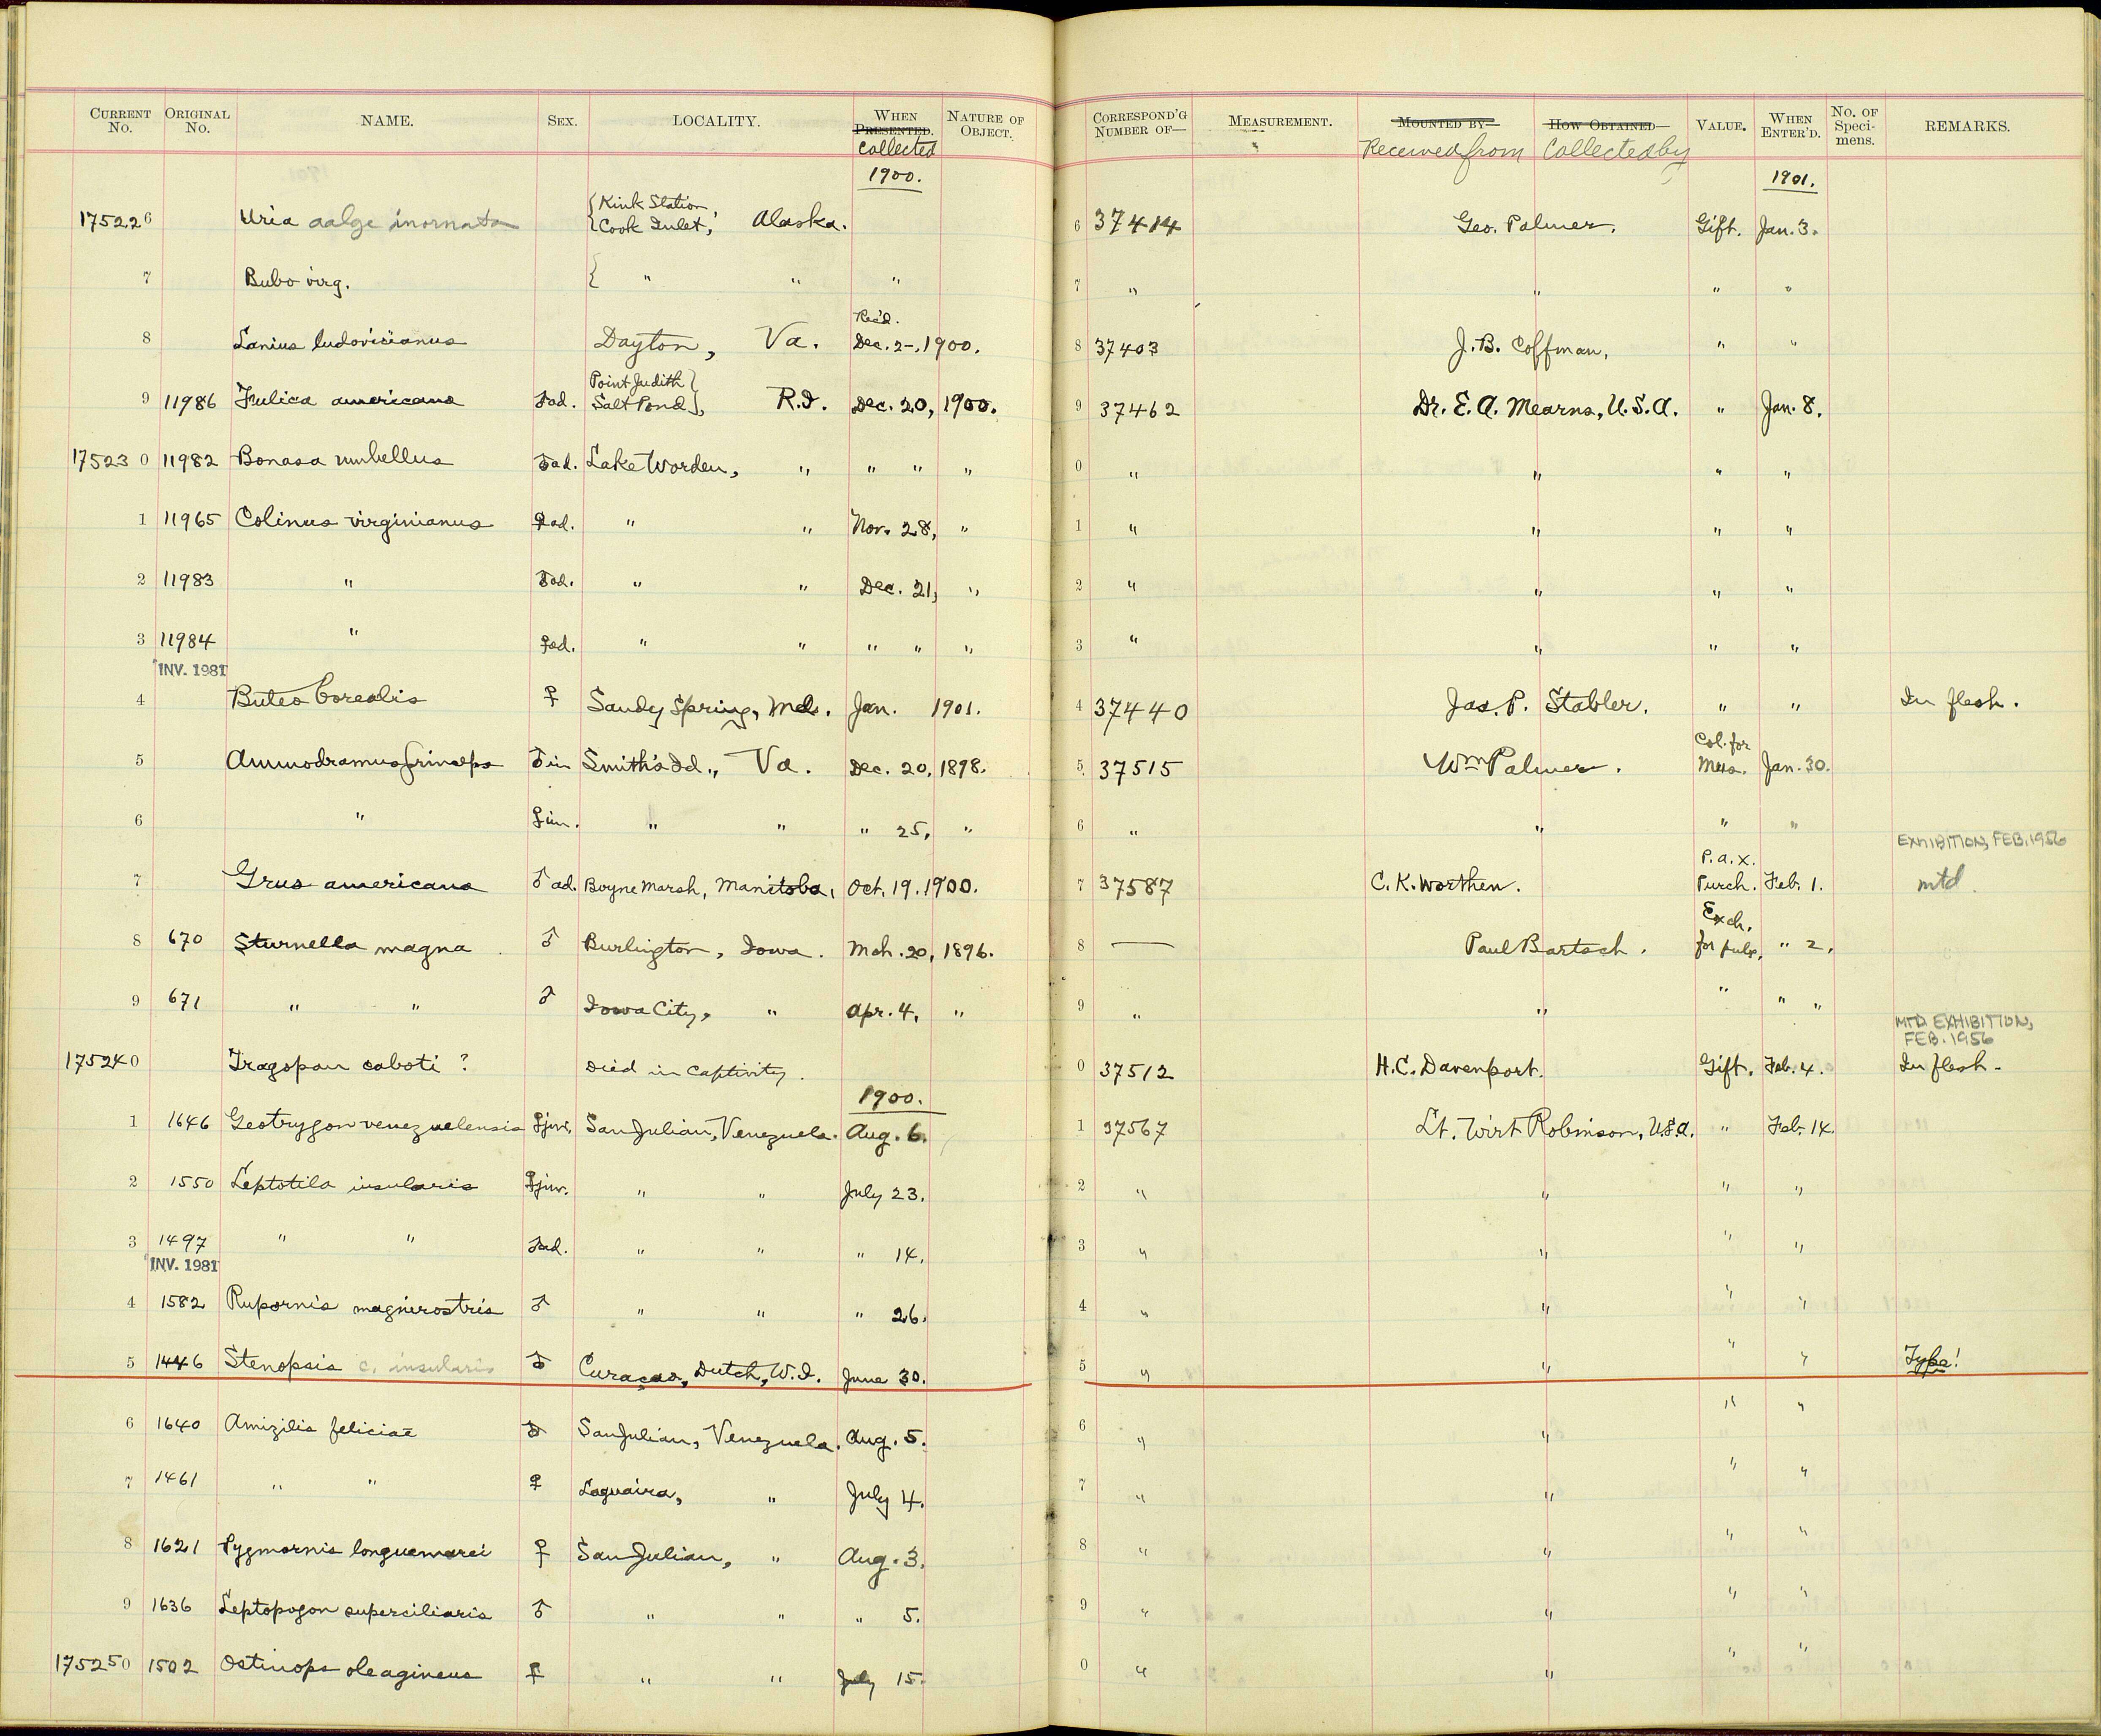 CURRENT No. ORIGINAL No. NAME. SEX. LOCALITY. WHEN PRESENTED. Collected NATURE OF OBJECT. CORRESPOND'G NUMBER OF— MEASUREMENT. MOUNTED BY— Received from HOW OBTAINED— Collected by VALUE. WHEN ENTER'D. No. OF Specimens. REMARKS.
1900. 1901.
175226 Uria aalge inornata {Kink Station Cook Inlet, Alaska. 6 37414 Geo. Palmer. Gift. Jan. 3.
7 Bubo virg. { " " " 7 " " " "
8 Lanius ludovicianus Dayton, Va. Rec'd. Dec. 2-, 1900. 8 37403 J. B. Coffman. " "
9 11986 Fulica americana ♂ad. Point Judith Salt Pond}, R.I. Dec. 20, 1900. 9 37462 Dr. E. A. Mearns, U.S.A. " Jan. 8.
175230 11982 Bonasa umbellus ♂ad. Lake Worden, " " " " 0 " " " "
1 11965 Colinus virginianus ♀ad. " " Nov. 28, " 1 " " " "
2 11983 " ♂ad. " " Dec. 21, " 2 " " " "
3 11984 " ♀ad. " " " " " 3 " " " "
INV. 1981
4 Buteo borealis ♀ Sandy Spring, Md. Jan. 1901. 4 37440 Jas. P. Stabler. " " In flesh.
5 Ammodramus princeps ♂im Smith's Id., Va. Dec. 20, 1898. 5 37515 Wm Palmer. Col. for Mus. Jan. 30.
6 " ♀im. " " " 25, " 6 " " " "
EXHIBITION, FEB. 1956
7 Grus americana ♂ad. Boyne Marsh, Manitoba, Oct. 19. 1900. 7 37587 C. K. Worthen. P.a.x. Purch. Feb. 1. mtd.
8 670 Sturnella magna ♂ Burlington, Iowa. Mch. 20, 1896. 8 — Paul Bartsch. Exch. for pubs. " 2.
9 671 " " ♂ Iowa City, " Apr. 4, " 9 " " " " "
MTD. EXHIBITION, FEB. 1956
175240 Tragopan caboti ? Died in Captivity. 0 37512 H. C. Davenport. Gift. Feb. 4. In flesh.
1900.
1 1646 Geotrygon venezuelensis ♀juv. San Julian, Venezuela. Aug. 6. 1 37567 Lt. Wirt Robinson, U.S.A. " Feb. 14.
2 1550 Leptotila insularis ♀juv. " " July 23. 2 " " " "
3 1497 " " ♂ad. " " " 14. 3 " " " "
INV. 1981
4 1582 Rupornis magnirostris ♂ " " " 26. 4 " " " "
5 1446 Stenopsis c. insularis ♂ Curaçao, Dutch, W.I. June 30. 5 " " " " Type!
6 1640 Amizilis feliciae ♂ San Julian, Venezuela. Aug. 5. 6 " " " "
7 1461 " " ♀ Laguaira, " July 4. 7 " " " "
8 1621 Pygmornis longuemarei ♀ San Julian, " Aug. 3. 8 " " " "
9 1636 Leptopogon superciliaris ♂ " " " 5. 9 " " " "
175250 1502 Ostinops oleagineus ♀ " " July 15. 0 " " " "